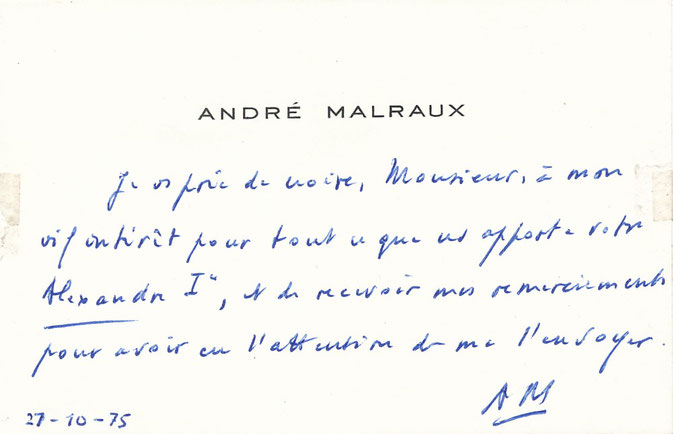 ANDRÉ MALRAUX
Je vs prie de croire, Monsieur, à mon
vif intérêt pour tout ce que ns apporte votre
Alexandre Iᵉʳ, et de recevoir mes remerciements
pour avoir eu l'attention de me l'envoyer.
AM
27-10-75